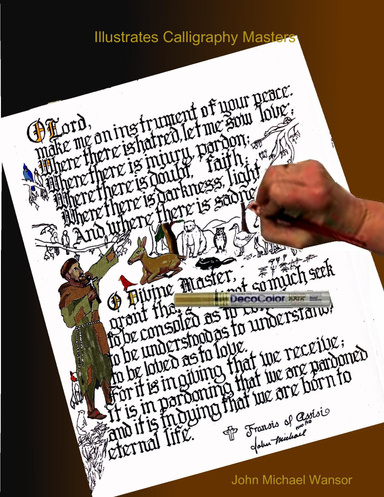 Illustrates Calligraphy Masters
O Lord,
make me an instrument of your peace.
Where there is hatred, let me sow love;
Where there is injury, pardon;
Where there is doubt, faith,
Where there is darkness, light
And where there is sadne
O Divine Master,
grant tha not so much seek
to be consoled as to
to be understood as to understand,
to be loved as to love
for it is in giving that we receive;
it is in pardoning that we are pardoned
and it is in dying that we are born to
eternal life.
DecoColor
Francis of Assisi
John Michael
John Michael Wansor